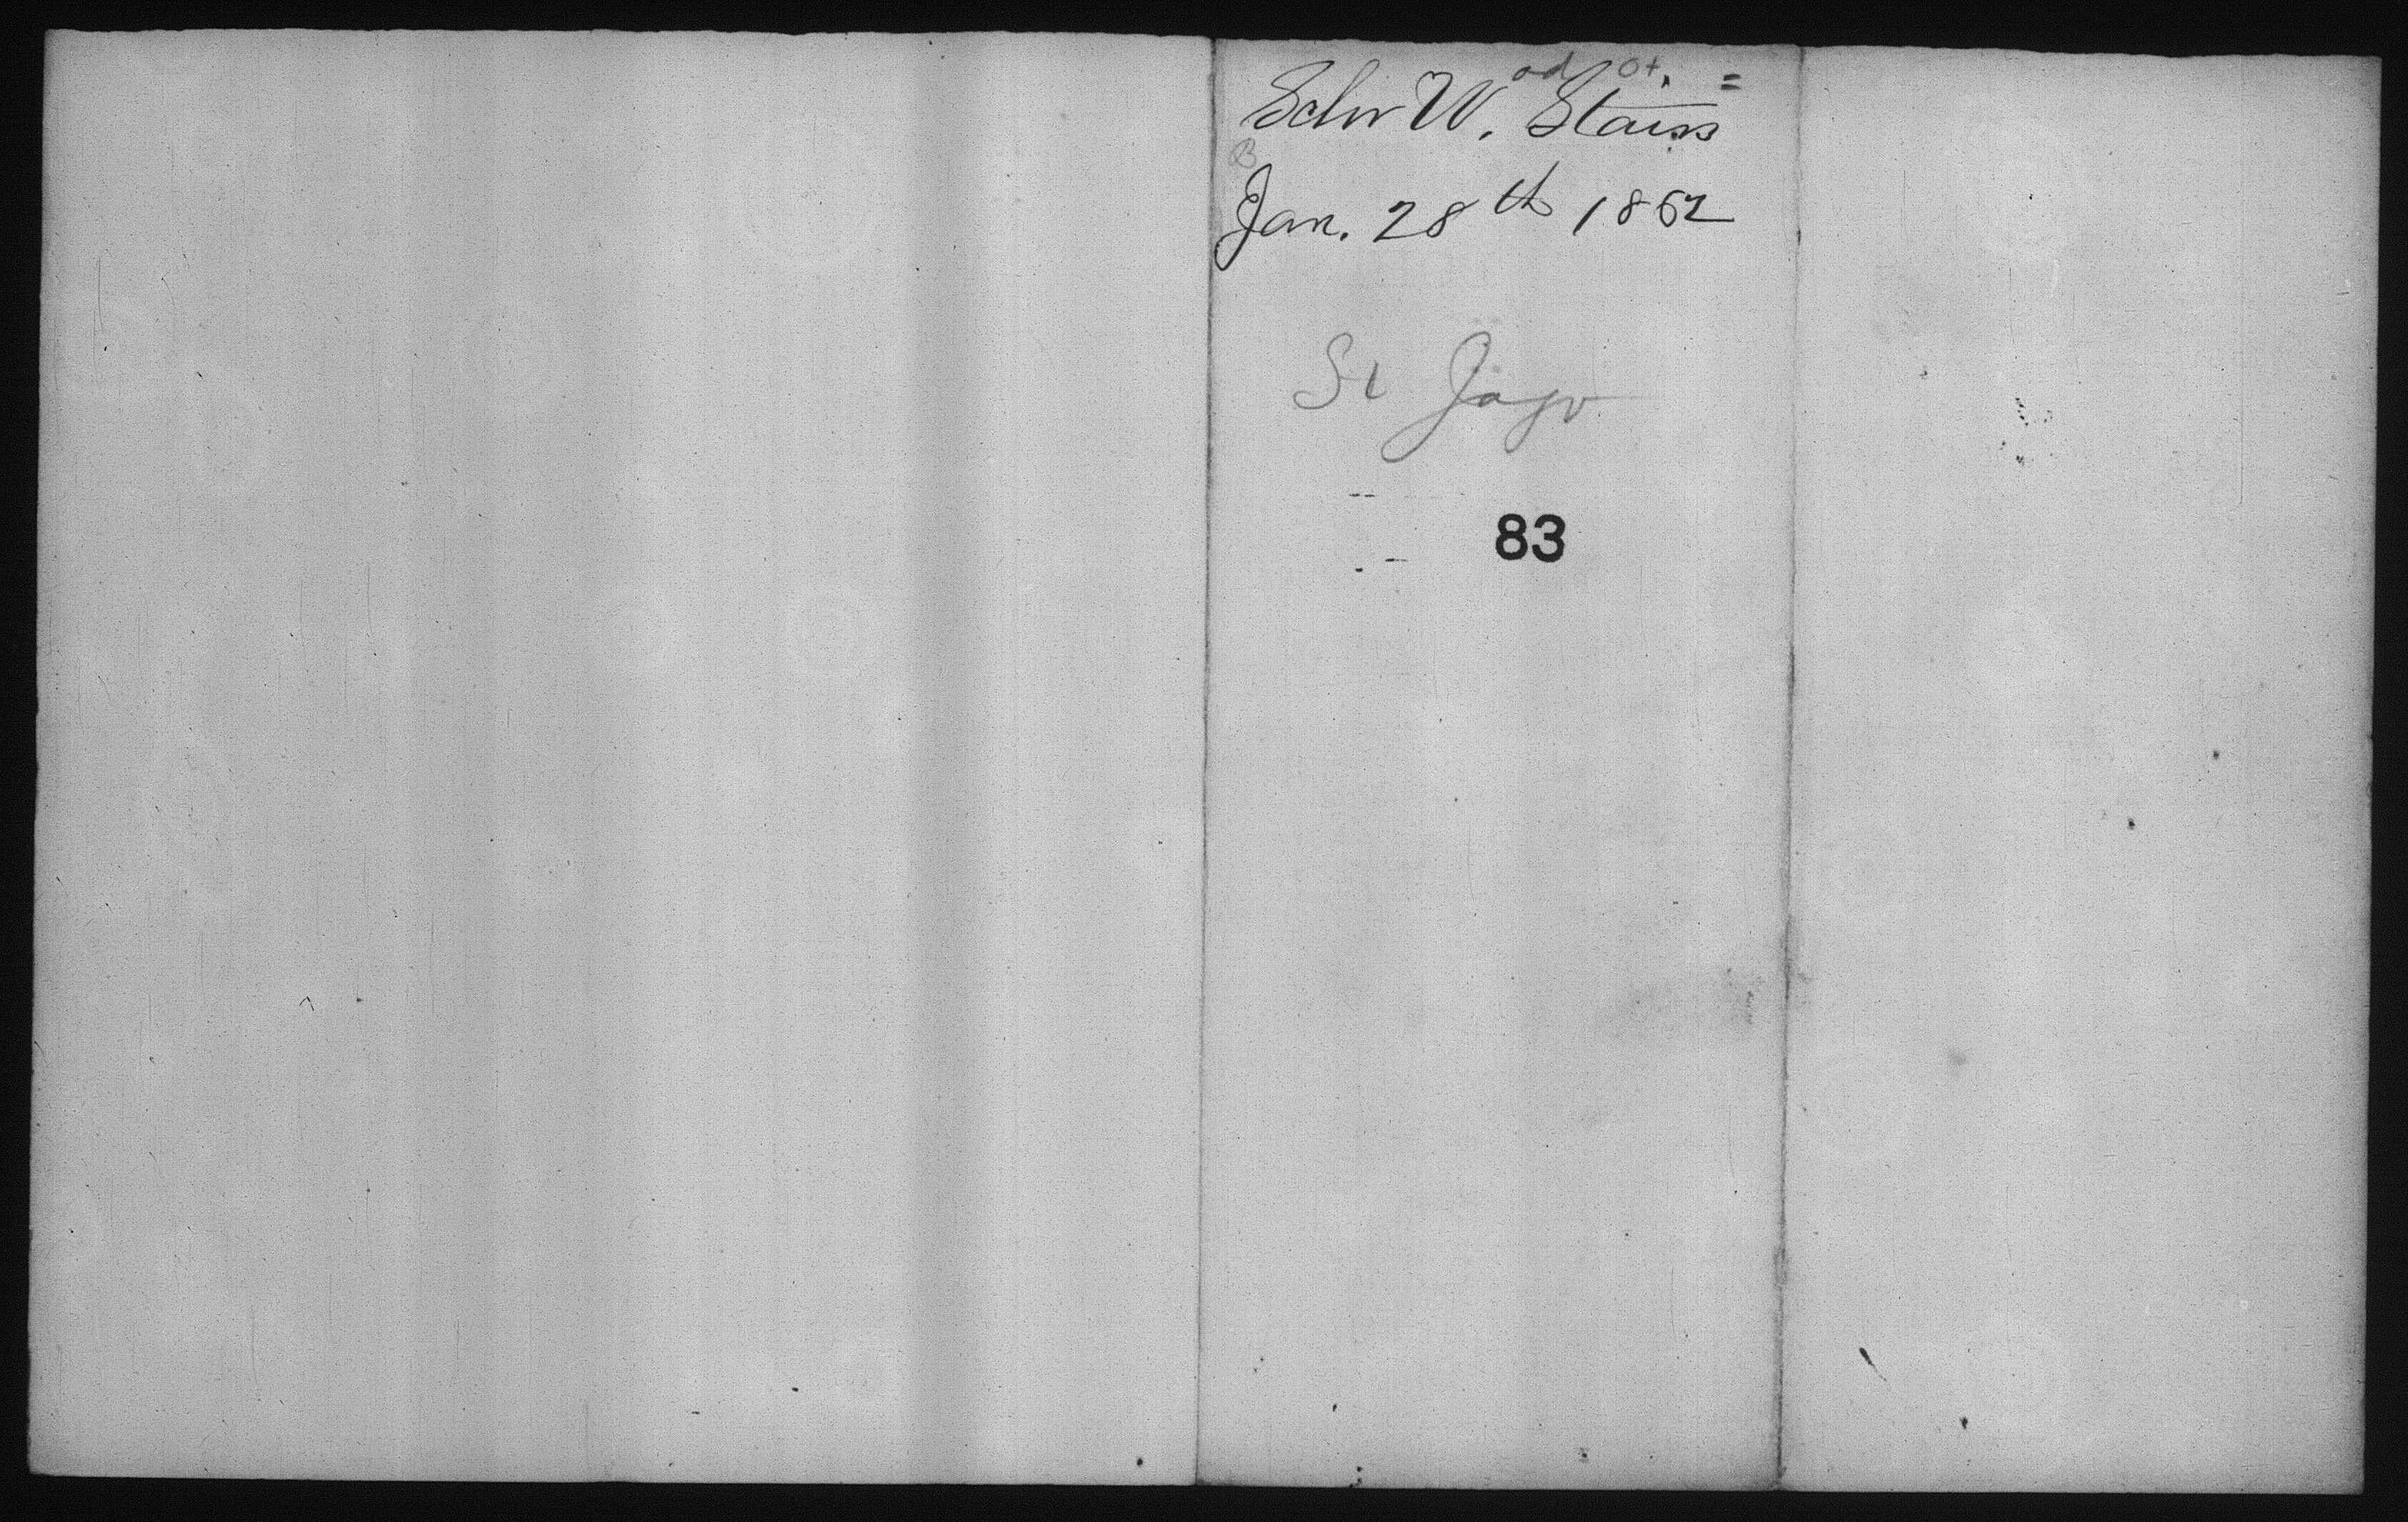 Schr W. Stairs
Jan. 28th 1862
St Jago
83